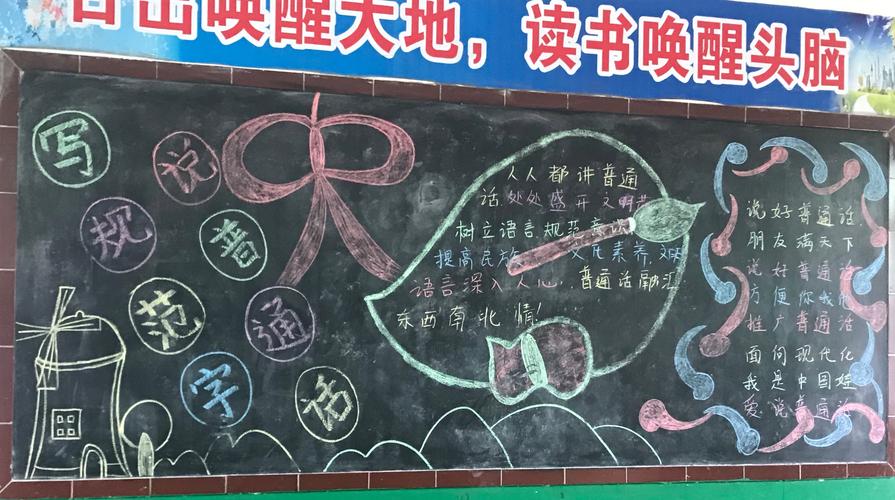 日出唤醒大地，读书唤醒头脑
写规范字
说普通话
人人都讲普通
话处处盛开文明花
树立语言规范意识
提高民族文化素养.文明
语言深入人心.普通话融汇
东西南北情!
说好普通话
朋友满天下
说好普通话
方便你我他
推广普通话
面向现代化
我是中国娃
爱说普通话